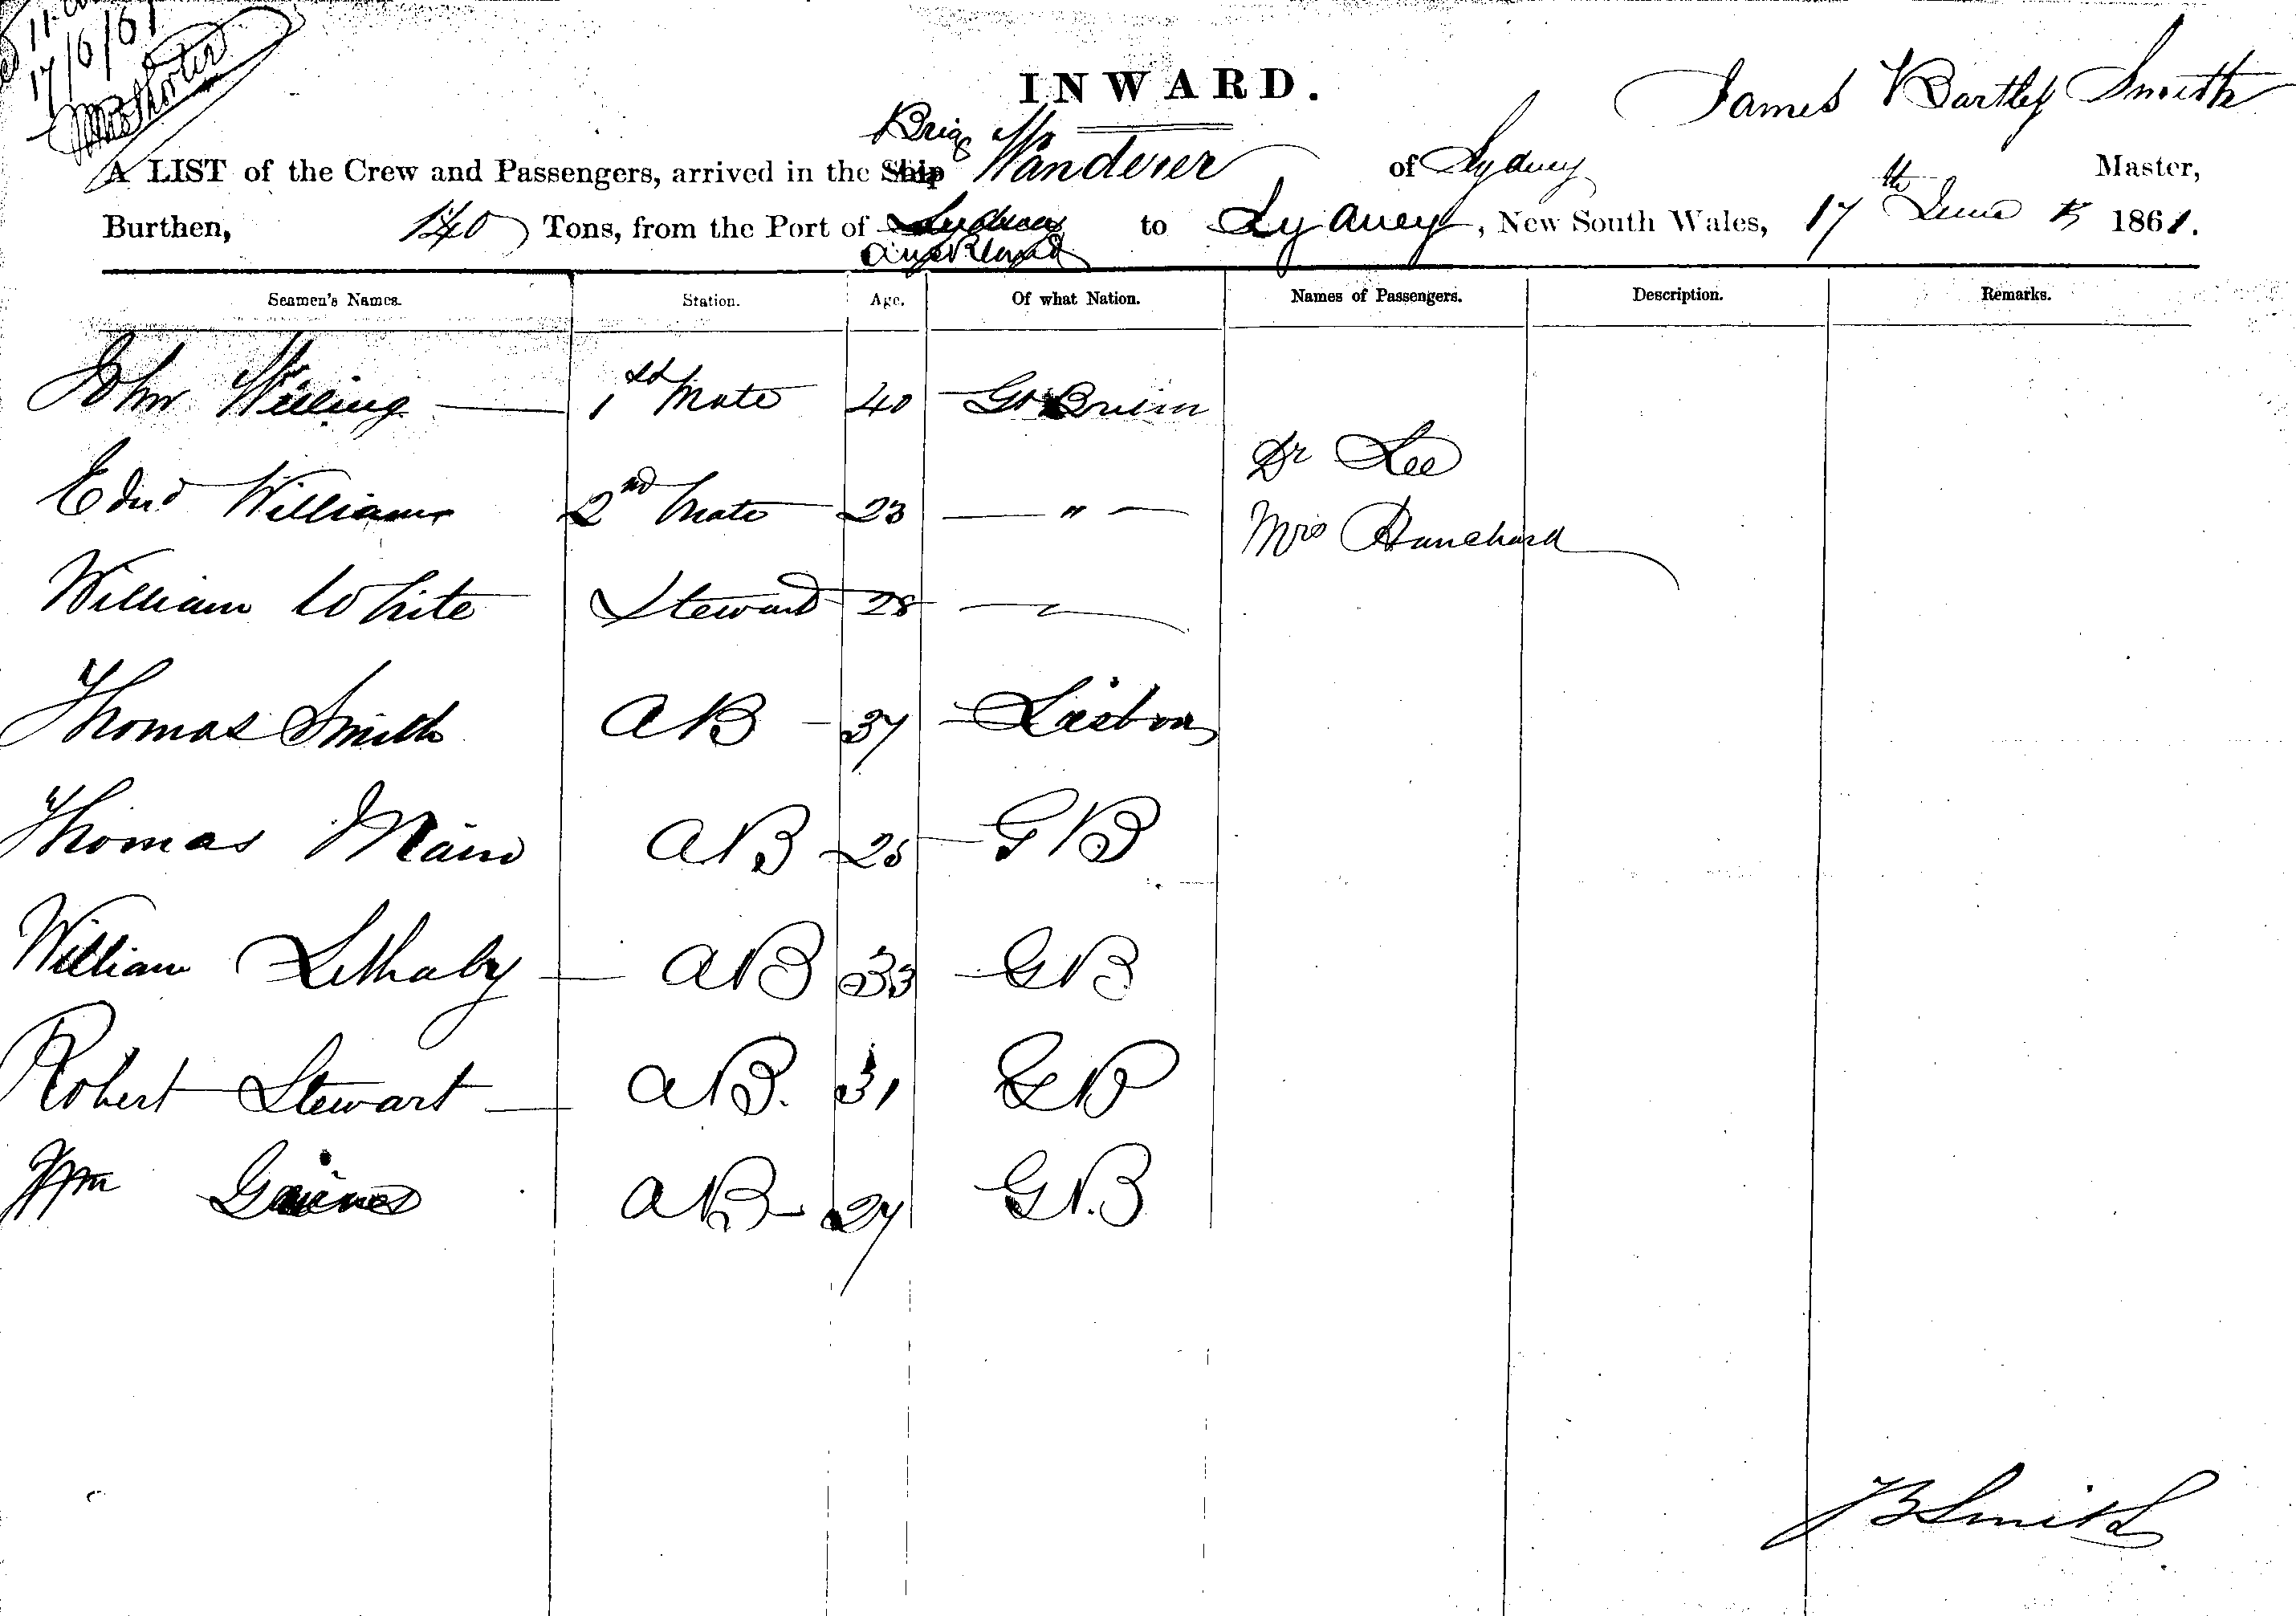 17/6/61
INWARD.
James Bartley Smith
Brig
A LIST of the Crew and Passengers, arrived in the Ship Wanderer of Sydney Master,
Burthen, 140 Tons, from the Port of Sydney to Sydney, New South Wales, 17th June 1861.
Auckland
Seamen's Names. Station. Age. Of what Nation. Names of Passengers. Description. Remarks.
John Willing 1st Mate 40 Gt
Dr Lee
Edwd Williams 2nd Mate 23 "
Mrs
William White Steward 28
Thomas Smith AB 37 Lisbon
Thomas AB 25 GB
William Lethaby AB 33 GB
Robert Stewart AB. 31 GB
Wm AB 27 G.B
JB Smith